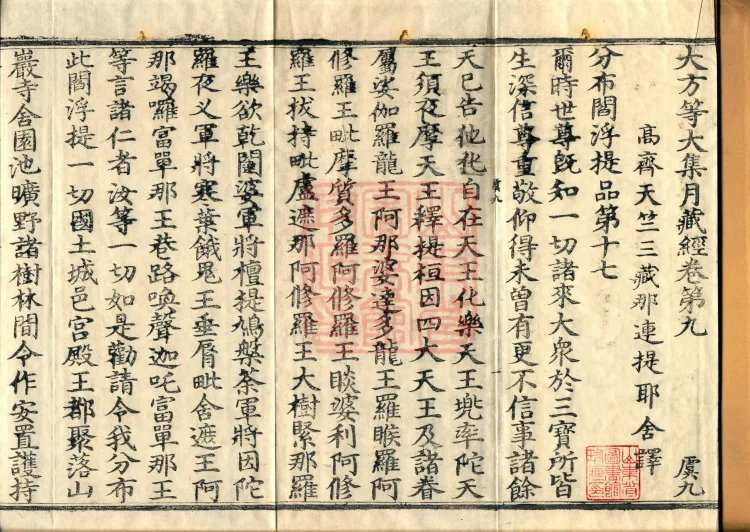 大方等大集月藏經卷第九 虞九
高齊天竺三藏那連提耶舍譯
分布閻浮提品第十七
爾時世尊既知一切諸來大衆於三寶所皆
生深信尊重敬仰得未曾有更不信事諸餘
天已告他化自在天王化樂天王兠率陀天
王須夜摩天王釋提桓因四大天王及諸眷
屬娑伽羅龍王阿那婆達多龍王羅睺羅阿
修羅王毗摩質多羅阿修羅王睒婆利阿修
羅王拔持毗盧遮那阿修羅王大樹緊那
王樂欲乾闥婆軍將檀提鳩槃荼軍將因陀
羅夜义軍將寒葉餓鬼王垂脣毗舍遮王阿
那竭囉富單那王巷路喚聲迦吒富單那王
等言諸仁者汝等一切如是勸請令我分布
此閻浮提一切國土城邑宮殿王都聚落山
巖寺舍園池曠野諸樹林間令作安置護持
虞九